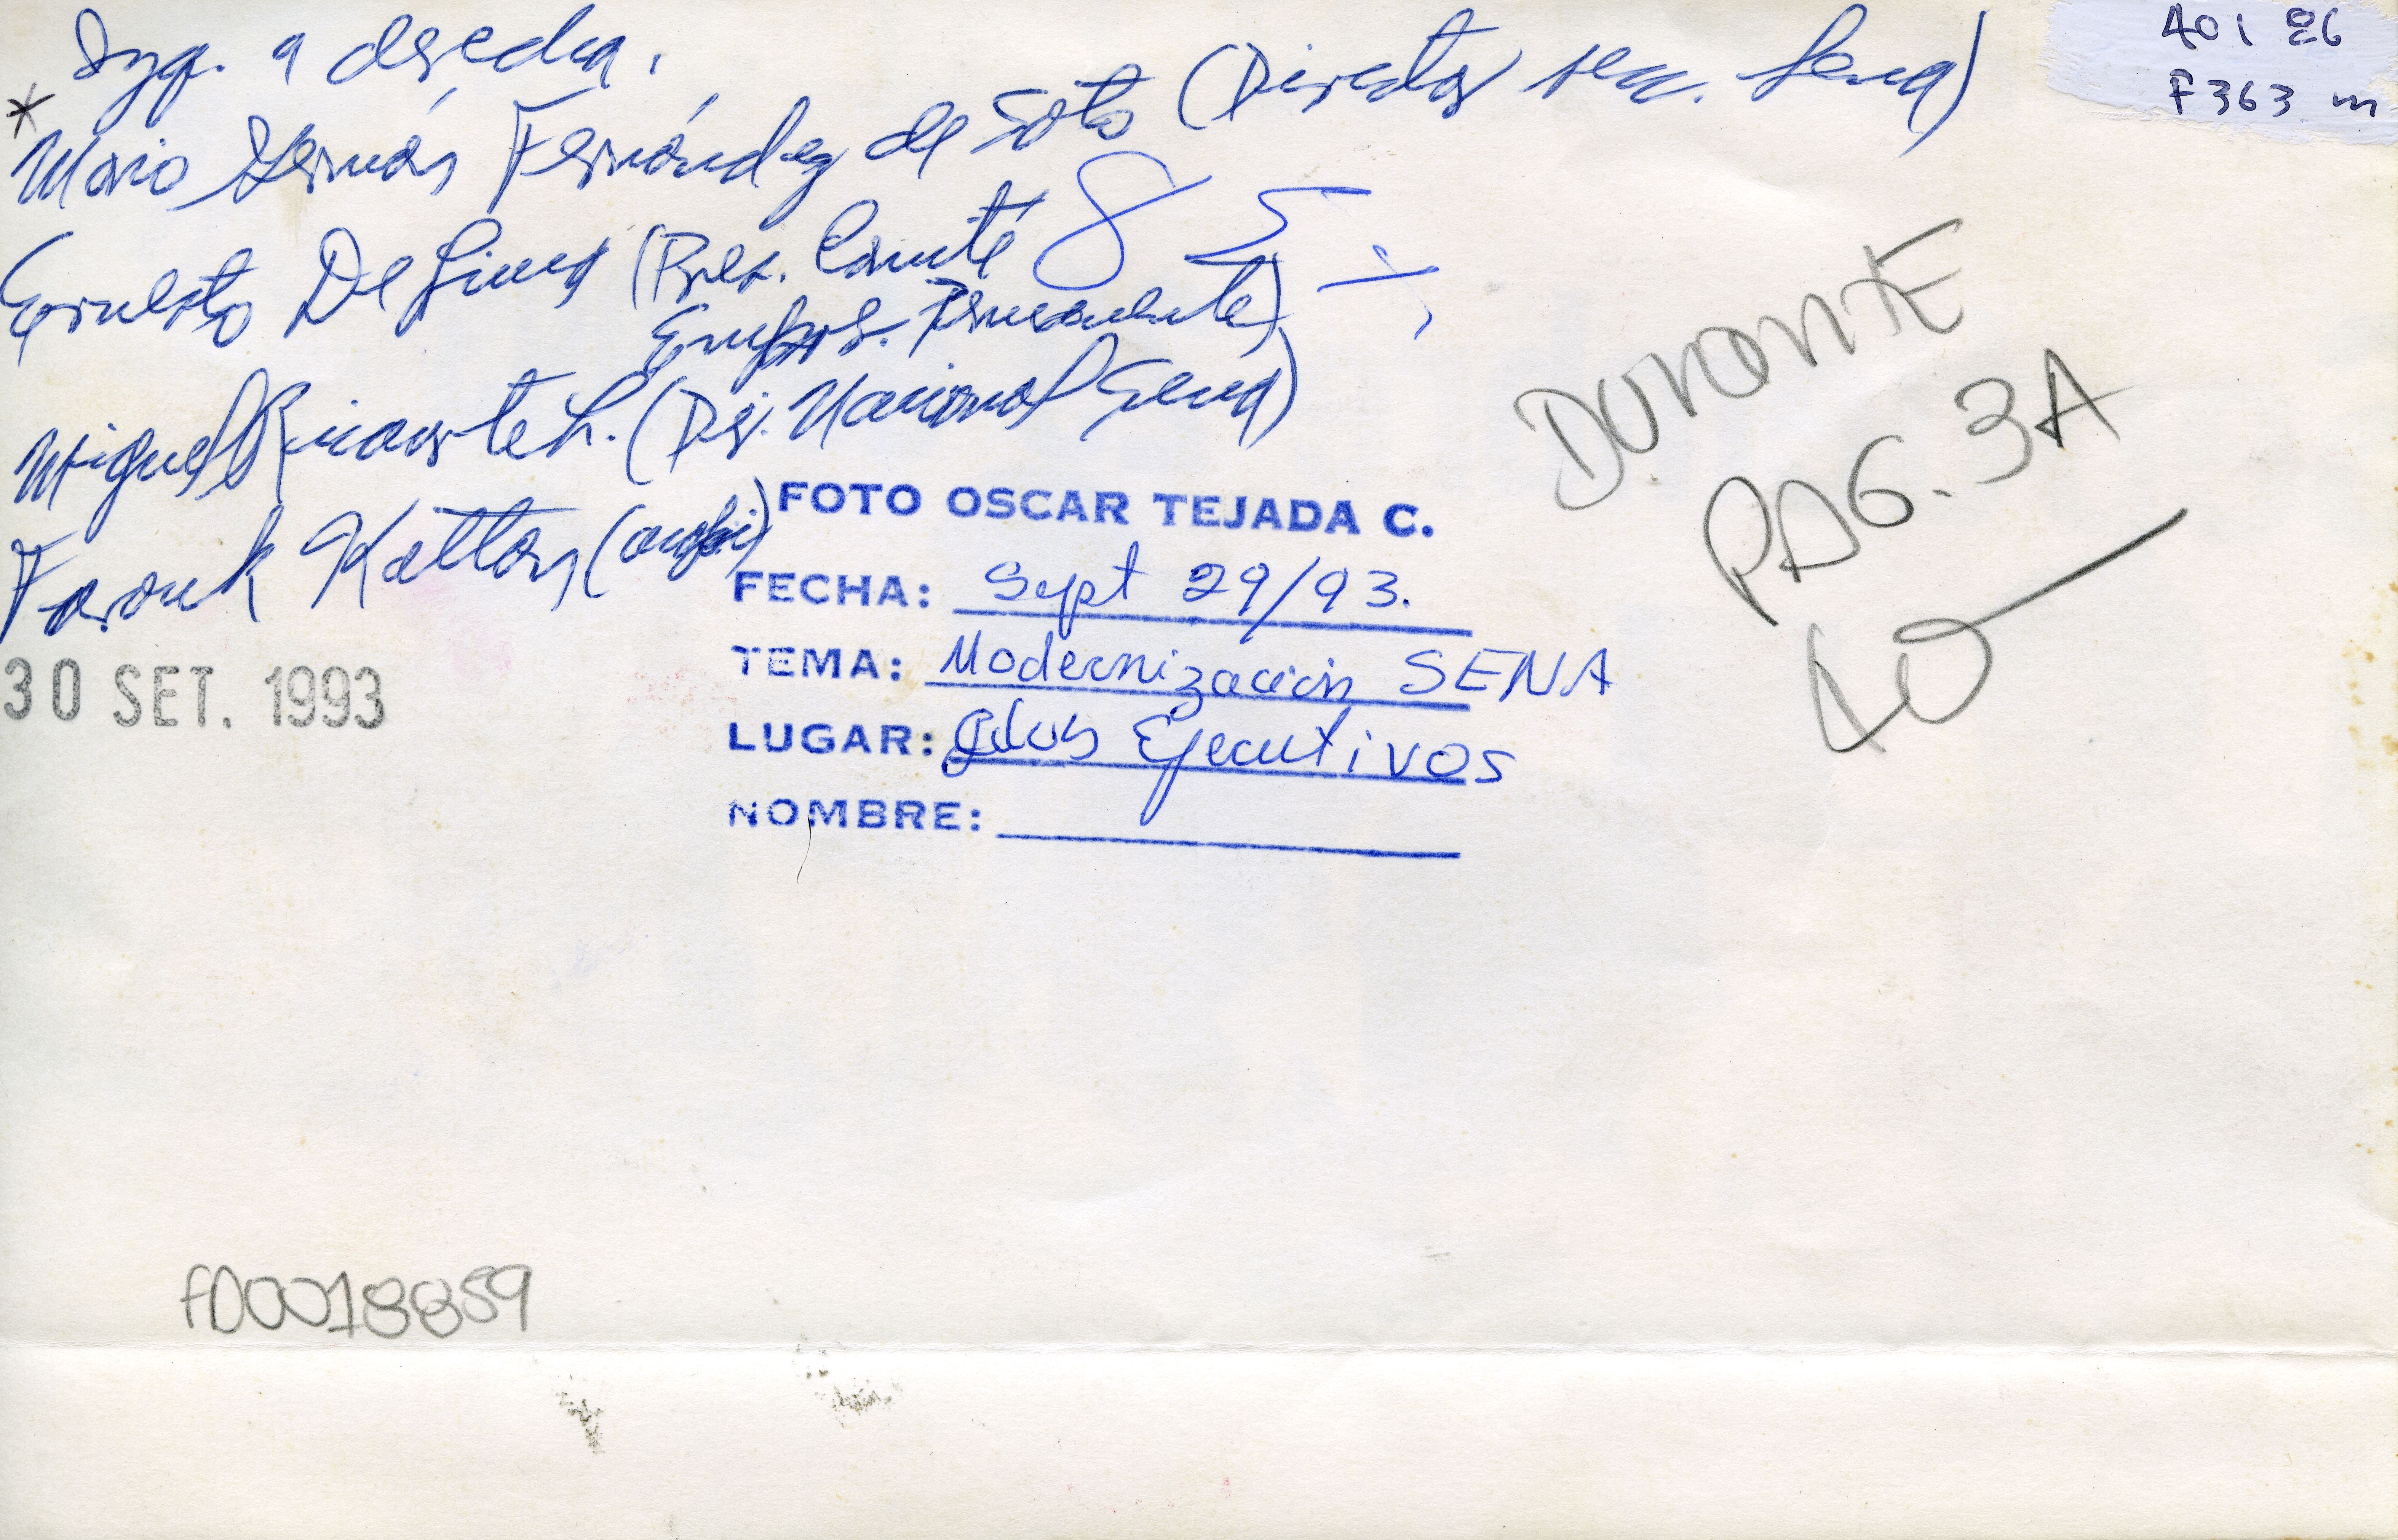 Izq. a derecha.
* Mario Germán Fernández de Soto (Director secc. Sena)
Ernesto De Lima (Pres. Comité
Empres. Permanente)
Miguel Ricaurte L. (Dir. Nacional Sena)
Farouk Kattan (andi)
85
A01 86
F363 m
DURANTE
PAG. 3A
FOTO OSCAR TEJADA C.
FECHA: Sept 29/93.
TEMA: Modernización SENA
LUGAR: Club Ejecutivos
NOMBRE:
30 SET. 1993
f00018859